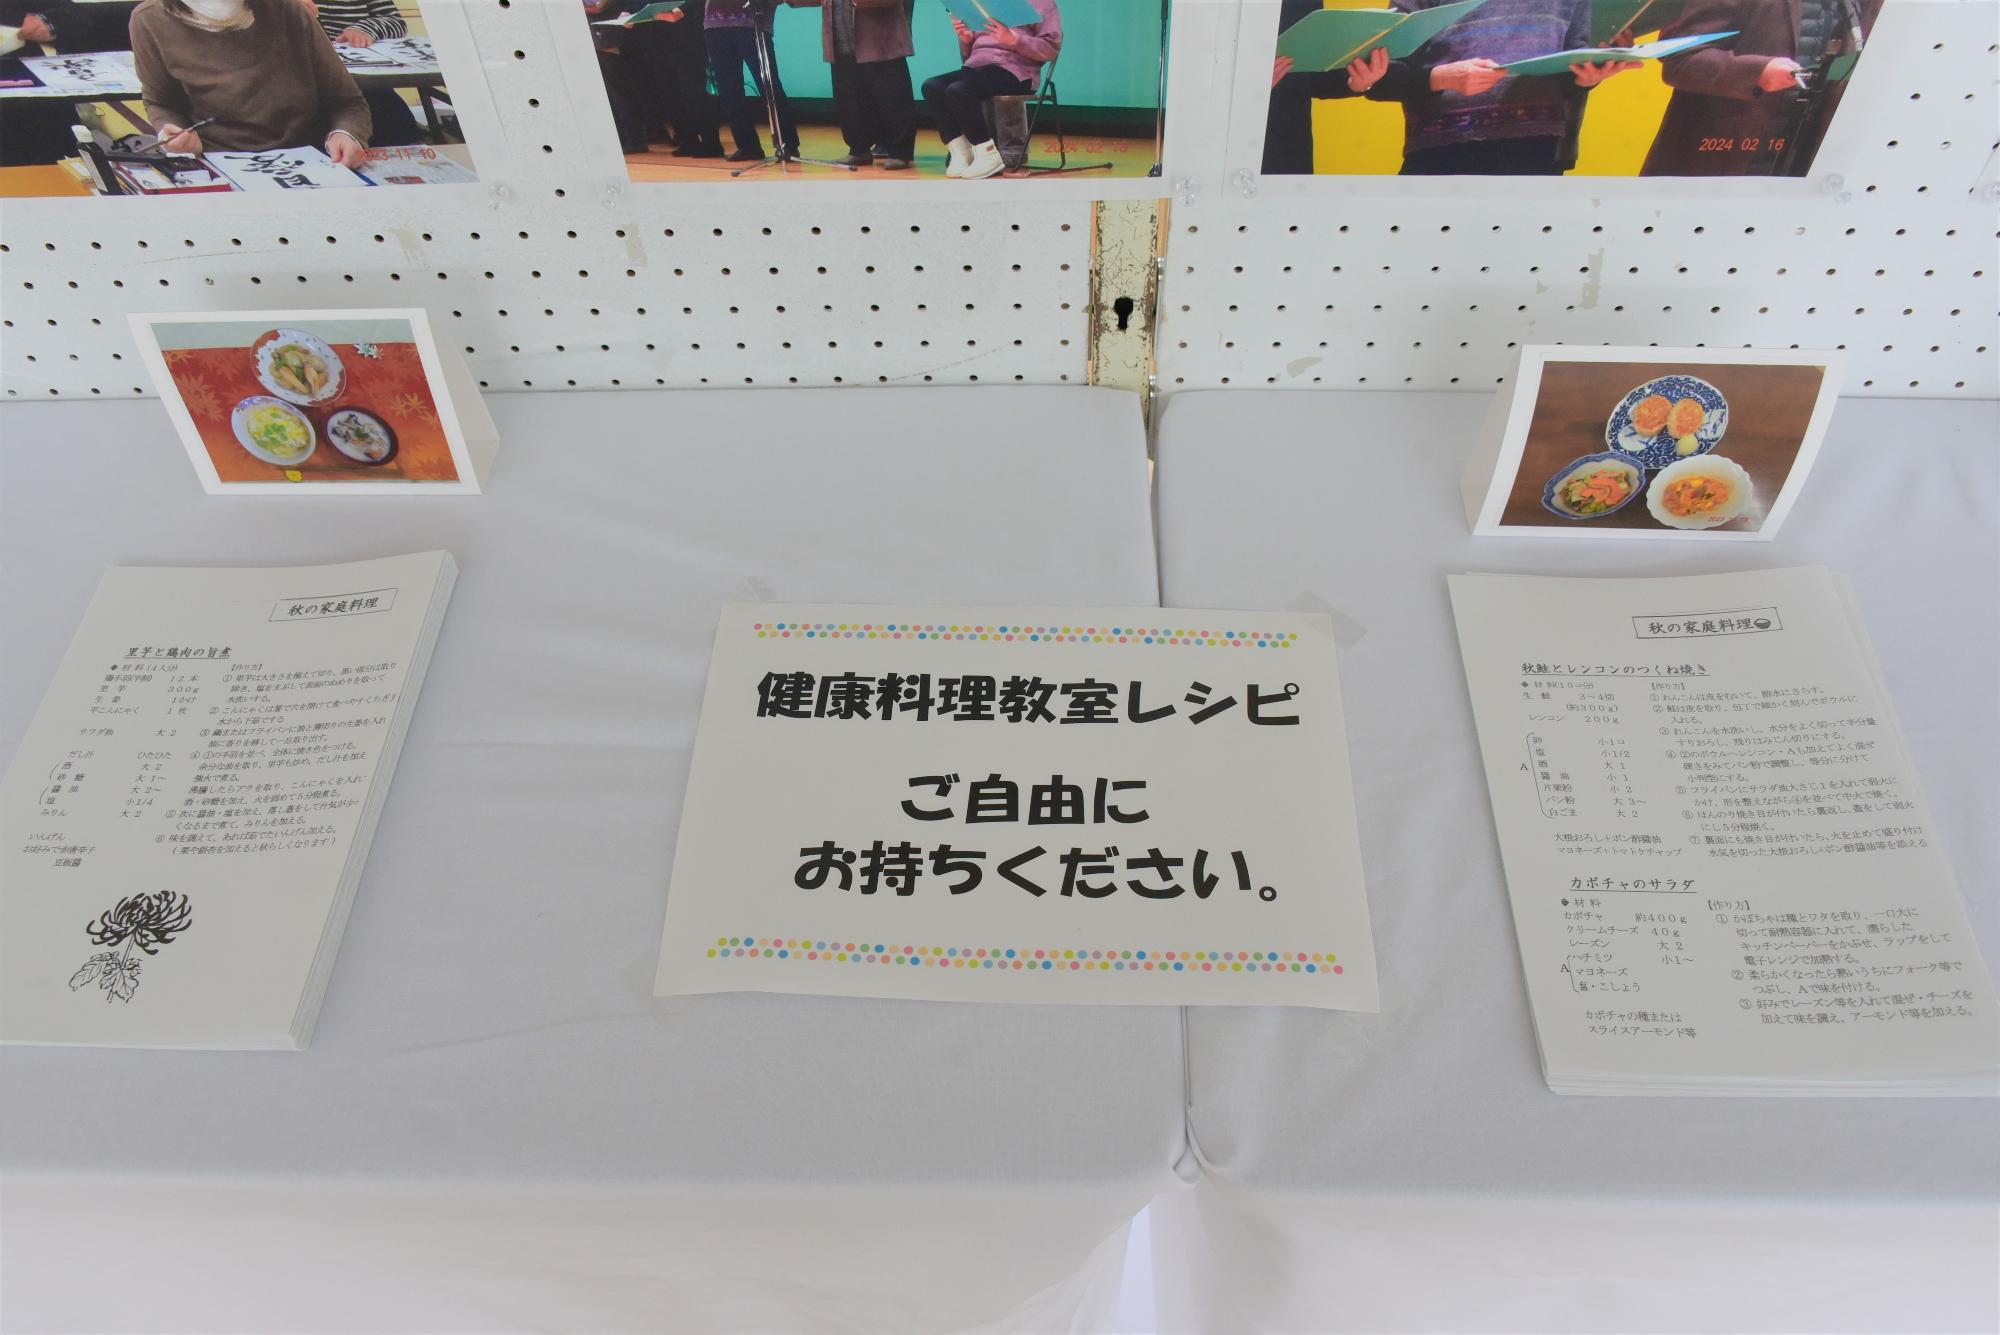 2023 11 10
2024 02 16
2024 02 16
秋の家庭料理
里芋と鶏肉の旨煮
◆ 材料(4人分)
鶏手羽(平割) 12本
里芋 300g
生姜 1かけ
平こんにゃく 1枚
サラダ油 大2
だし汁 ひたひた
酒 大2
砂糖 大1～
醤油 大2～
塩 小1/4
みりん 大2
いんげん
お好みで赤唐辛子
豆板醤
【作り方】
① 里芋は大きさを揃えて切り、黒い部分は取り
除き、塩をまぶして表面のぬめりを取って
水洗いする。
② こんにゃくは箸で穴を開けて食べやすくちぎり
水から下茹でする
③ 鍋またはフライパンに油と薄切りの生姜を入れ
油に香りを移して一旦取り出す。
④ ①の手羽を並べ、全体に焼き色をつける。
余分な油を取り、里芋も炒め、だし汁を加え
強火で煮る。
沸騰したらアクを取り、こんにゃくを入れ
酒・砂糖を加え、火を弱めて5分程煮る。
⑤ 次に醤油・塩を加え、落し蓋をして汁気が少
くなるまで煮て、みりんを加える。
⑥ 味を調えて、あれば茹でたいんげん加える。
(栗や銀杏を加えると秋らしくなります)
健康料理教室レシピ
ご自由に
お持ちください。
秋の家庭料理
秋鮭とレンコンのつくね焼き
◆ 材料(10コ分)
生鮭 3～4切
(約300g)
レンコン 200g
A
卵 小1コ
塩 小1/2
酒 大1
醤油 小1
片栗粉 小2
パン粉 大3～
白ごま 大2
大根おろし+ポン酢醤油
マヨネーズ+トマトケチャップ
【作り方】
① れんこんは皮をむいて、酢水にさらす。
② 鮭は皮を取り、包丁で細かく刻んでボウルに
入れる。
③ れんこんを水洗いし、水分をよく切って半分量
すりおろし、残りはみじん切りにする。
④ ②のボウルへレンコン・Aも加えてよく混ぜ
硬さをみてパン粉で調整し、等分に分けて
小判型にする。
⑤ フライパンにサラダ油大さじ1を入れて弱火に
かけ、形を整えながら④を並べて中火で焼く。
⑥ ほんのり焼き目が付いたら裏返し、蓋をして弱火
にし5分程焼く。
⑦ 裏面にも焼き目が付いたら、火を止めて盛り付け
水気を切った大根おろし+ポン酢醤油等を添える
カボチャのサラダ
◆ 材料
カボチャ 約400g
クリームチーズ 40g
レーズン 大2
A
ハチミツ 小1～
マヨネーズ
塩・こしょう
カボチャの種または
スライスアーモンド等
【作り方】
① かぼちゃは種とワタを取り、一口大に
切って耐熱容器に入れて、濡らした
キッチンペーパーをかぶせ、ラップをして
電子レンジで加熱する。
② 柔らかくなったら熱いうちにフォーク等で
つぶし、Aで味を付ける。
③ 好みでレーズン等を入れて混ぜ・チーズを
加えて味を調え、アーモンド等を加える。